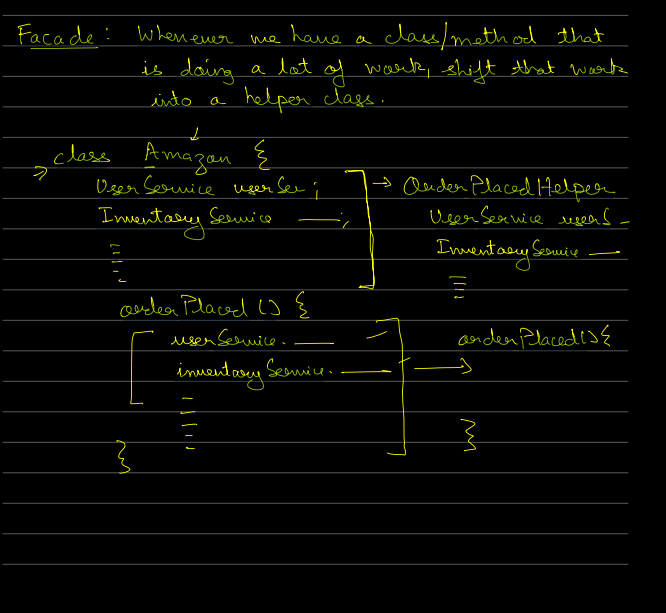 Facade: Whenever we have a class/method that
is doing a lot of work, shift that work
into a helper class.
class Amazon {
UserService userSer;
InventoryService ;
orderPlaced () {
userService.
inventoryService.
}
OrderPlacedHelper
UserService userS
InventoryService
orderPlaced() {
}